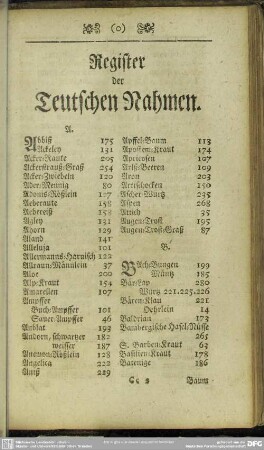 (0)
Register
der
Teutschen Nahmen.
A.
Abbiß 175
Ackeley 131
Acker-Raute 205
Ackerstrauß-Graß 254
Acker-Zwiebeln 120
Ader-Mennig 80
Adonis-Rößlein 127
Aeberaute 158
Aebereiß 158
Agley 131
Ahorn 129
Aland 141
Alleluja 101
Allermanns-Harnisch 122
Alraun-Männlein 37
Aloe 200
Alp-Kraut 154
Amarellen 107
Ampffer
Buch-Ampffer 101
Sauer-Ampffer 46
Andorn, schwartzer 182
weisser 187
Anemon-Rößlein 128
Angelica 222
Aniß 229
Apffel-Baum 113
Aposten-Kraut 174
Apricosen 107
Arles-Beeren 109
Aron 203
Artischocken 150
Ascher-Wurtz 235
Aspen 268
Attich 35
Augen-Trost 195
Augen-Trost-Graß 87
B.
Bach-Bungen 199
Müntz 185
Bär-Lap 280
Wurtz 221.225.226
Bären-Klau 221
Oehrlein 14
Baldrian 173
Bambergische Hasel-Nüsse
265
S. Barben-Kraut 63
Basilien-Kraut 178
Batenige 186
Baum